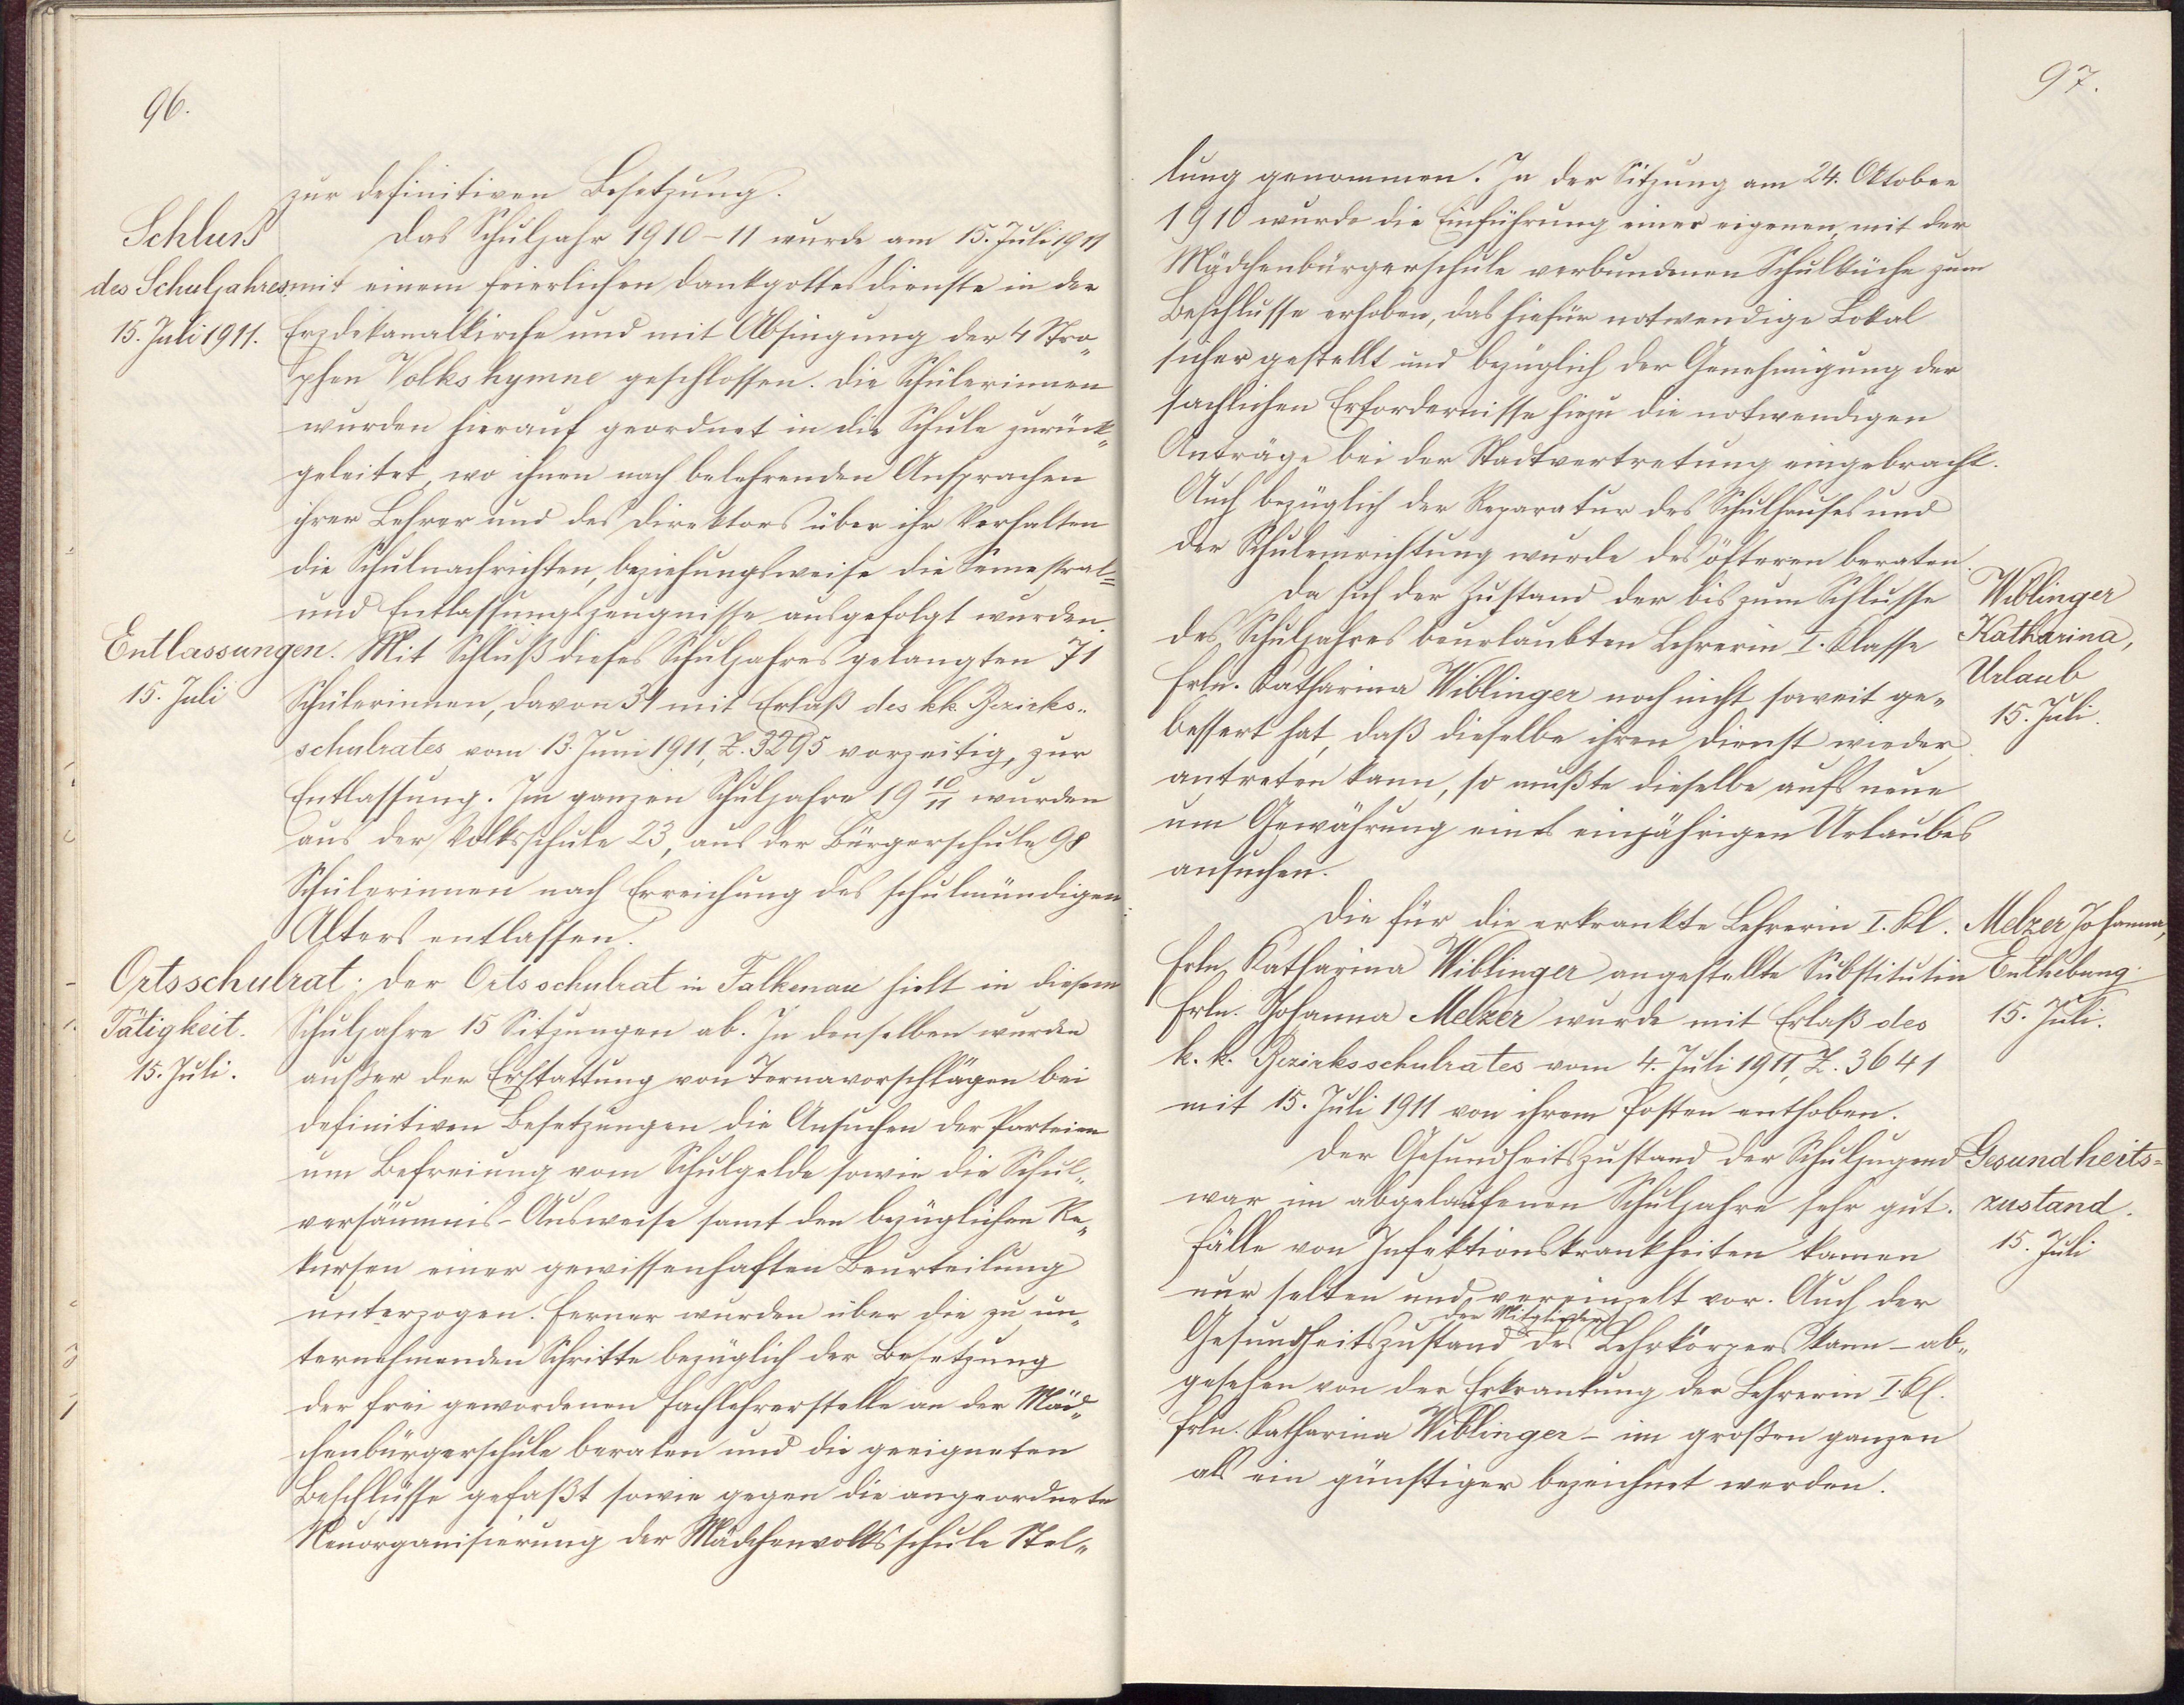 96.
zur definitiven Besetzung.
Schluss
des Schuljahres.
15. Juli 1911.
Das Schuljahr 1910-11 wurde am 15. Juli 1911
mit einem feierlichen Dankgottesdienste in der
Erzdekanalkirche und mit Absingung der 4 Stro„
phen Volkshymne geschlossen. Die Schülerinnen
wurden hierauf geordnet in die Schule zurück„
geleitet, wo ihnen nach belehrenden Ansprachen
ihrer Lehrer und des Direktors über ihr Verhalten
die Schulnachrichten, beziehungsweise die Semestral=
und Entlassungszeugnisse ausgefolgt wurden.
Entlassungen.
15. Juli
Mit Schluß dieses Schuljahres gelangten 71
Schülerinnen, davon 31 mit Erlaß des k.k. Bezirks„
schulrates vom 13. Juni 1911, Z. 3295 vorzeitig, zur
Entlassung. Im ganzen Schuljahre 19 10/11 wurden
aus der Volksschule 23, aus der Bürgerschule 98
Schülerinnen nach Erreichung des schulmündigen
Alters entlassen.
Ortsschulrat.
Tätigkeit.
15. Juli.
Der Ortsschulrat in Falkenau hielt in diesem
Schuljahre 15 Sitzungen ab. In denselben wurden
außer der Erstattung von Ternavorschlägen bei
definitiven Besetzungen die Ansuchen der Parteien
um Befreiung vom Schulgelde sowie die Schul„
versäumnis-Ausweise samt den bezüglichen Re„
kursen einer gewissenhaften Beurteilung
unterzogen. Ferner wurden über die zu un„
ternehmenden Schritte bezüglich der Besetzung
der frei gewordenen Fachlehrerstelle an der Mäd„
chenbürgerschule beraten und die geeigneten
Beschlüsse gefaßt sowie gegen die angeordnete
Neuorganisierung der Mädchenvolksschule Stel„
97.
lung genommen. In der Sitzung am 24. Oktober
1910 wurde die Einführung einer eigenen, mit der
Mädchenbürgerschule verbundenen Schulküche zum
Beschlusse erhoben, das hiefür notwendige Lokal
sicher gestellt und bezüglich der Genehmigung der
sachlichen Erfordernisse hiezu die notwendigen
Anträge bei der Stadtvertretung eingebracht.
Auch bezüglich der Reparatur des Schulhauses und
der Schuleinrichtung wurde des öfteren beraten.
Wiblinger
Katharina,
Urlaub
15. Juli.
Da sich der Zustand der bis zum Schlusse
des Schuljahres beurlaubten Lehrerin I. Klasse
Frln. Katharina Wiblinger noch nicht soweit ge„
bessert hat, daß dieselbe ihren Dienst wieder
antreten kann, so mußte dieselbe aufs neue
um Gewährung eines einjährigen Urlaubes
ansuchen.
Melzer Johanna,
Enthebung
15. Juli.
Die für die erkrankte Lehrerin I. Kl.
Frln. Katharina Wiblinger angestellte Substitutin
Frln. Johanna Melzer wurde mit Erlaß des
k. k. Bezirksschulrates vom 4. Juli 1911, Z. 3641
mit 15. Juli 1911 von ihrem Posten enthoben.
Gesundheits=
zustand.
15. Juli
Der Gesundheitszustand der Schuljugend
war im abgelaufenen Schuljahre sehr gut.
Fälle von Infektionskrankheiten kamen
nur selten und vereinzelt vor. Auch der
der Mitglieder
Gesundheitszustand des Lehrkörpers kann - ab„
gesehen von der Erkrankung der Lehrerin I. Kl.
Frln. Katharina Wiblinger - im großen ganzen
als ein günstiger bezeichnet werden.